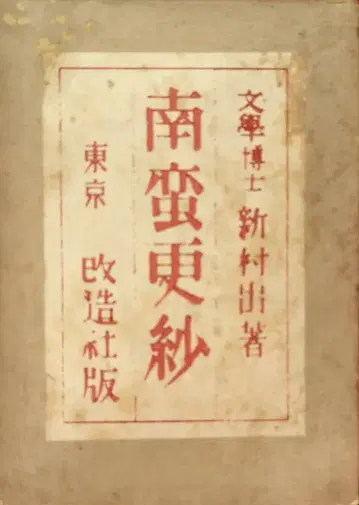 文學博士 新村出著
南蛮更紗
東京 改造社版